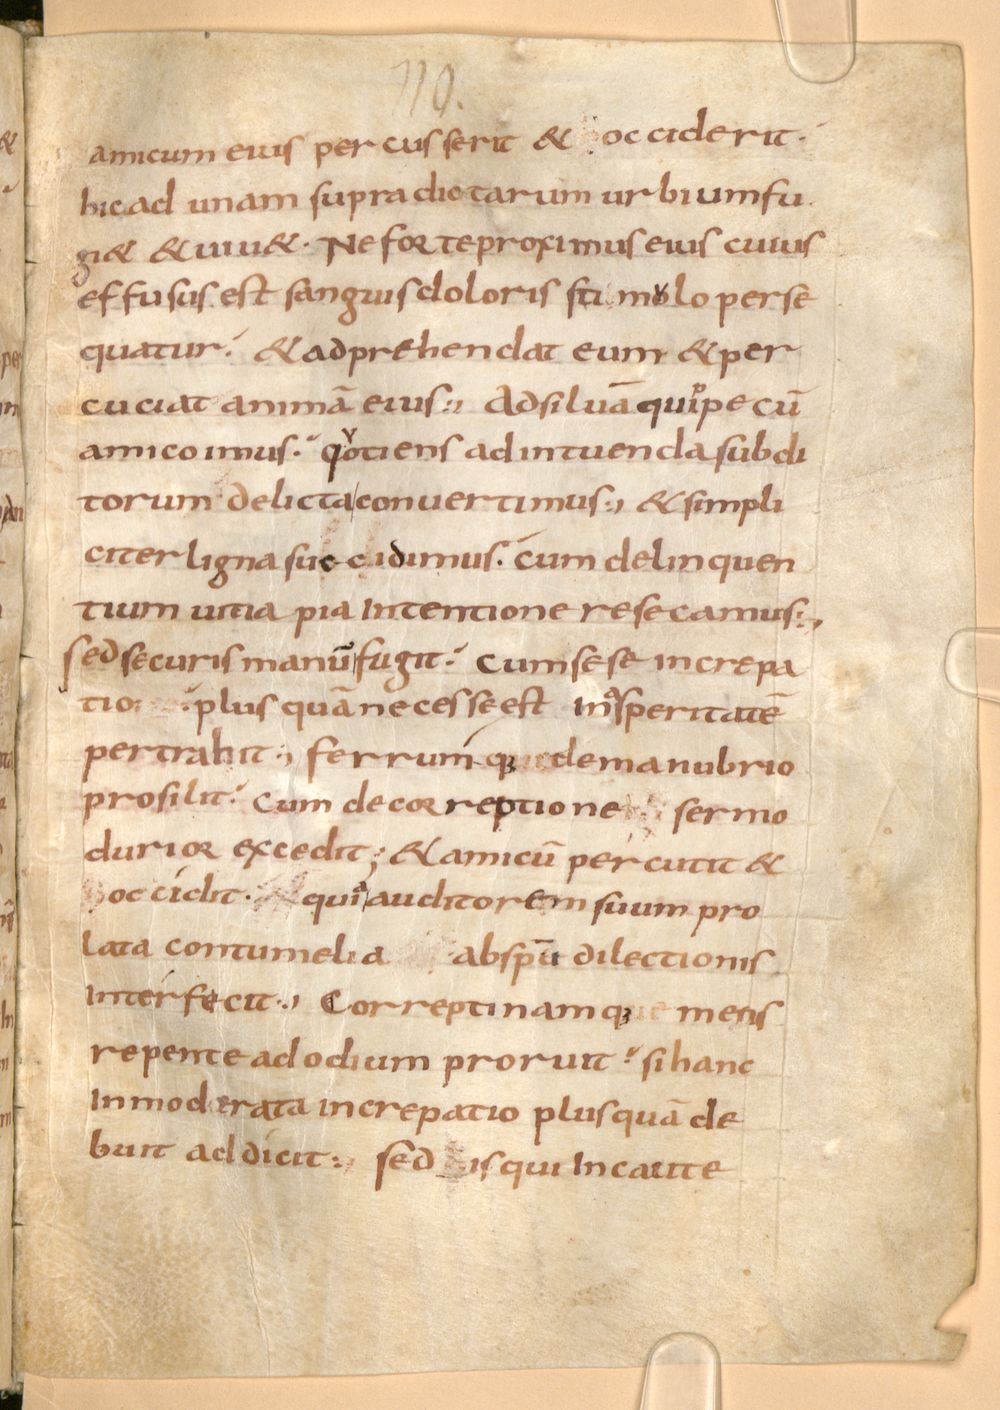 110.
amicum eius percusserit & occiderit.
hic ad unam supradictarum urbium fu
gi& & uiu&. Ne forte proximus eius cuius
effusus est sanguis doloris stimulo perse
quatur. & adprehendat eum & per
cuciat animā eius:, Ad siluā quippe cū
amico imus. quotiens ad intuenda subdi
torum delicta conuertimus:, & simpli
citer ligna succidimus. cum delinquen
tium uitia pia Intentione resecamus:,
sed securis manū fugit. cum sese increpa
tio plus quā necesse est In asperitatē
pertrahit:, ferrumq; de manubrio
prosilit. Cum de correptione sermo
durior excedit; & amicū percutit &
occidit. quia auditorem suum pro
lata contumelia ab spū dilectionis
Interfecit:, Correpti namq; mens
repente ad odium proruit. si hanc
Inmoderata increpatio plus quā de
buit addicit:, sed is qui Incaute